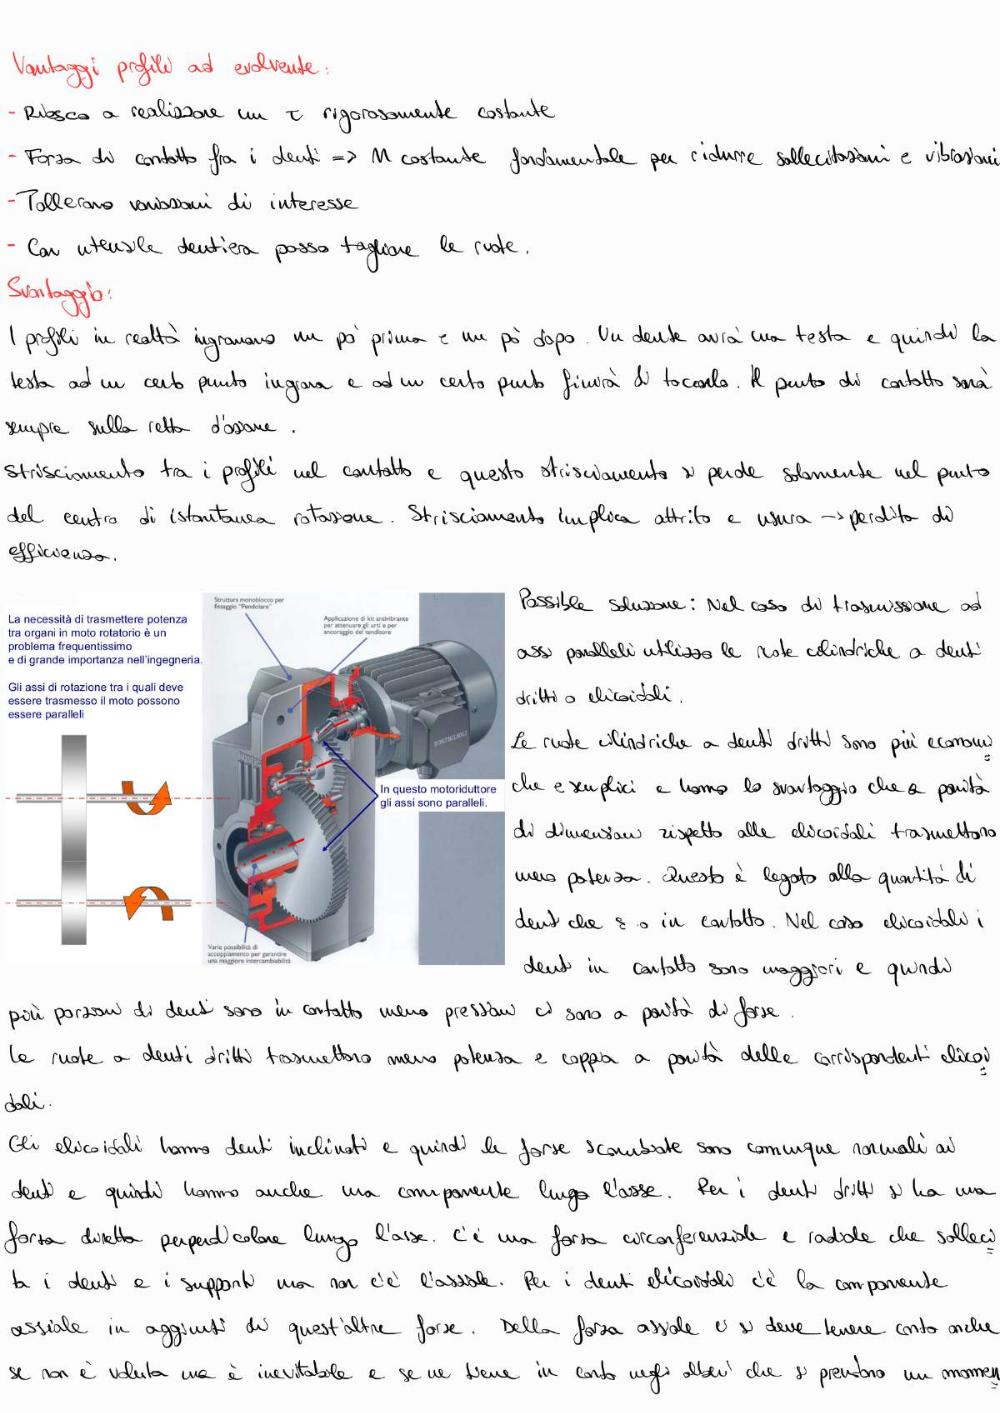 Vantaggi profili ad evolvente:
- Riesco a realizzare un τ rigorosamente costante
- Forza di contatto fra i denti => M costante fondamentale per ridurre sollecitazioni e vibrazioni
- Tollerano variazioni di interesse
- Con utensile dentiera posso tagliare le ruote.
Svantaggio:
I profili in realtà ingranano un pò prima e un pò dopo. Un dente avrà una testa e quindi la
testa ad un certo punto ingrana e ad un certo punto finirà di toccarla. Il punto di contatto sarà
sempre sulla retta d'azione.
Strisciamento tra i profili nel contatto e questo strisciamento si perde solamente nel punto
del centro di istantanea rotazione. Strisciamento implica attrito e usura -> perdita di
efficienza.
La necessità di trasmettere potenza
tra organi in moto rotatorio è un
problema frequentissimo
e di grande importanza nell'ingegneria.
Gli assi di rotazione tra i quali deve
essere trasmesso il moto possono
essere paralleli
Struttura monoblocco per
fissaggio "Pendolare"
Applicazione di kit antivibrante
per attenuare gli urti e per
ancoraggio del tenditore
BONFIGLIOLI
In questo motoriduttore
gli assi sono paralleli.
Varie possibilità di
accoppiamento per garantire
una maggiore intercambiabilità
Possibile soluzione: Nel caso di trasmissione ad
assi paralleli utilizzo le ruote cilindriche a denti
dritti o elicoidali.
Le ruote cilindriche a denti dritti sono più economi
che e semplici e hanno lo svantaggio che a parità
di dimensioni rispetto alle elicoidali trasmettono
meno potenza. Questo è legato alla quantità di
denti che s o in contatto. Nel caso elicoidali i
denti in contatto sono maggiori e quindi
più porzioni di denti sono in contatto meno pressioni ci sono a parità di forze.
Le ruote a denti dritti trasmettono meno potenza e coppia a parità delle corrispondenti elicoi
dali.
Gli elicoidali hanno denti inclinati e quindi le forze scambiate sono comunque normali ai
denti e quindi hanno anche una componente lungo l'asse. Per i denti dritti si ha una
forza diretta perpendicolare lungo l'asse. C'è una forza circonferenziale e radiale che solleci
ta i denti e i supporti ma non c'è l'assiale. Per i denti elicoidali c'è la componente
assiale in aggiunta di quest'altre forze. Della forza assiale ci si deve tenere conto anche
se non è voluta ma è inevitabile e se ne tiene in conto negli alberi che si prendono un momen